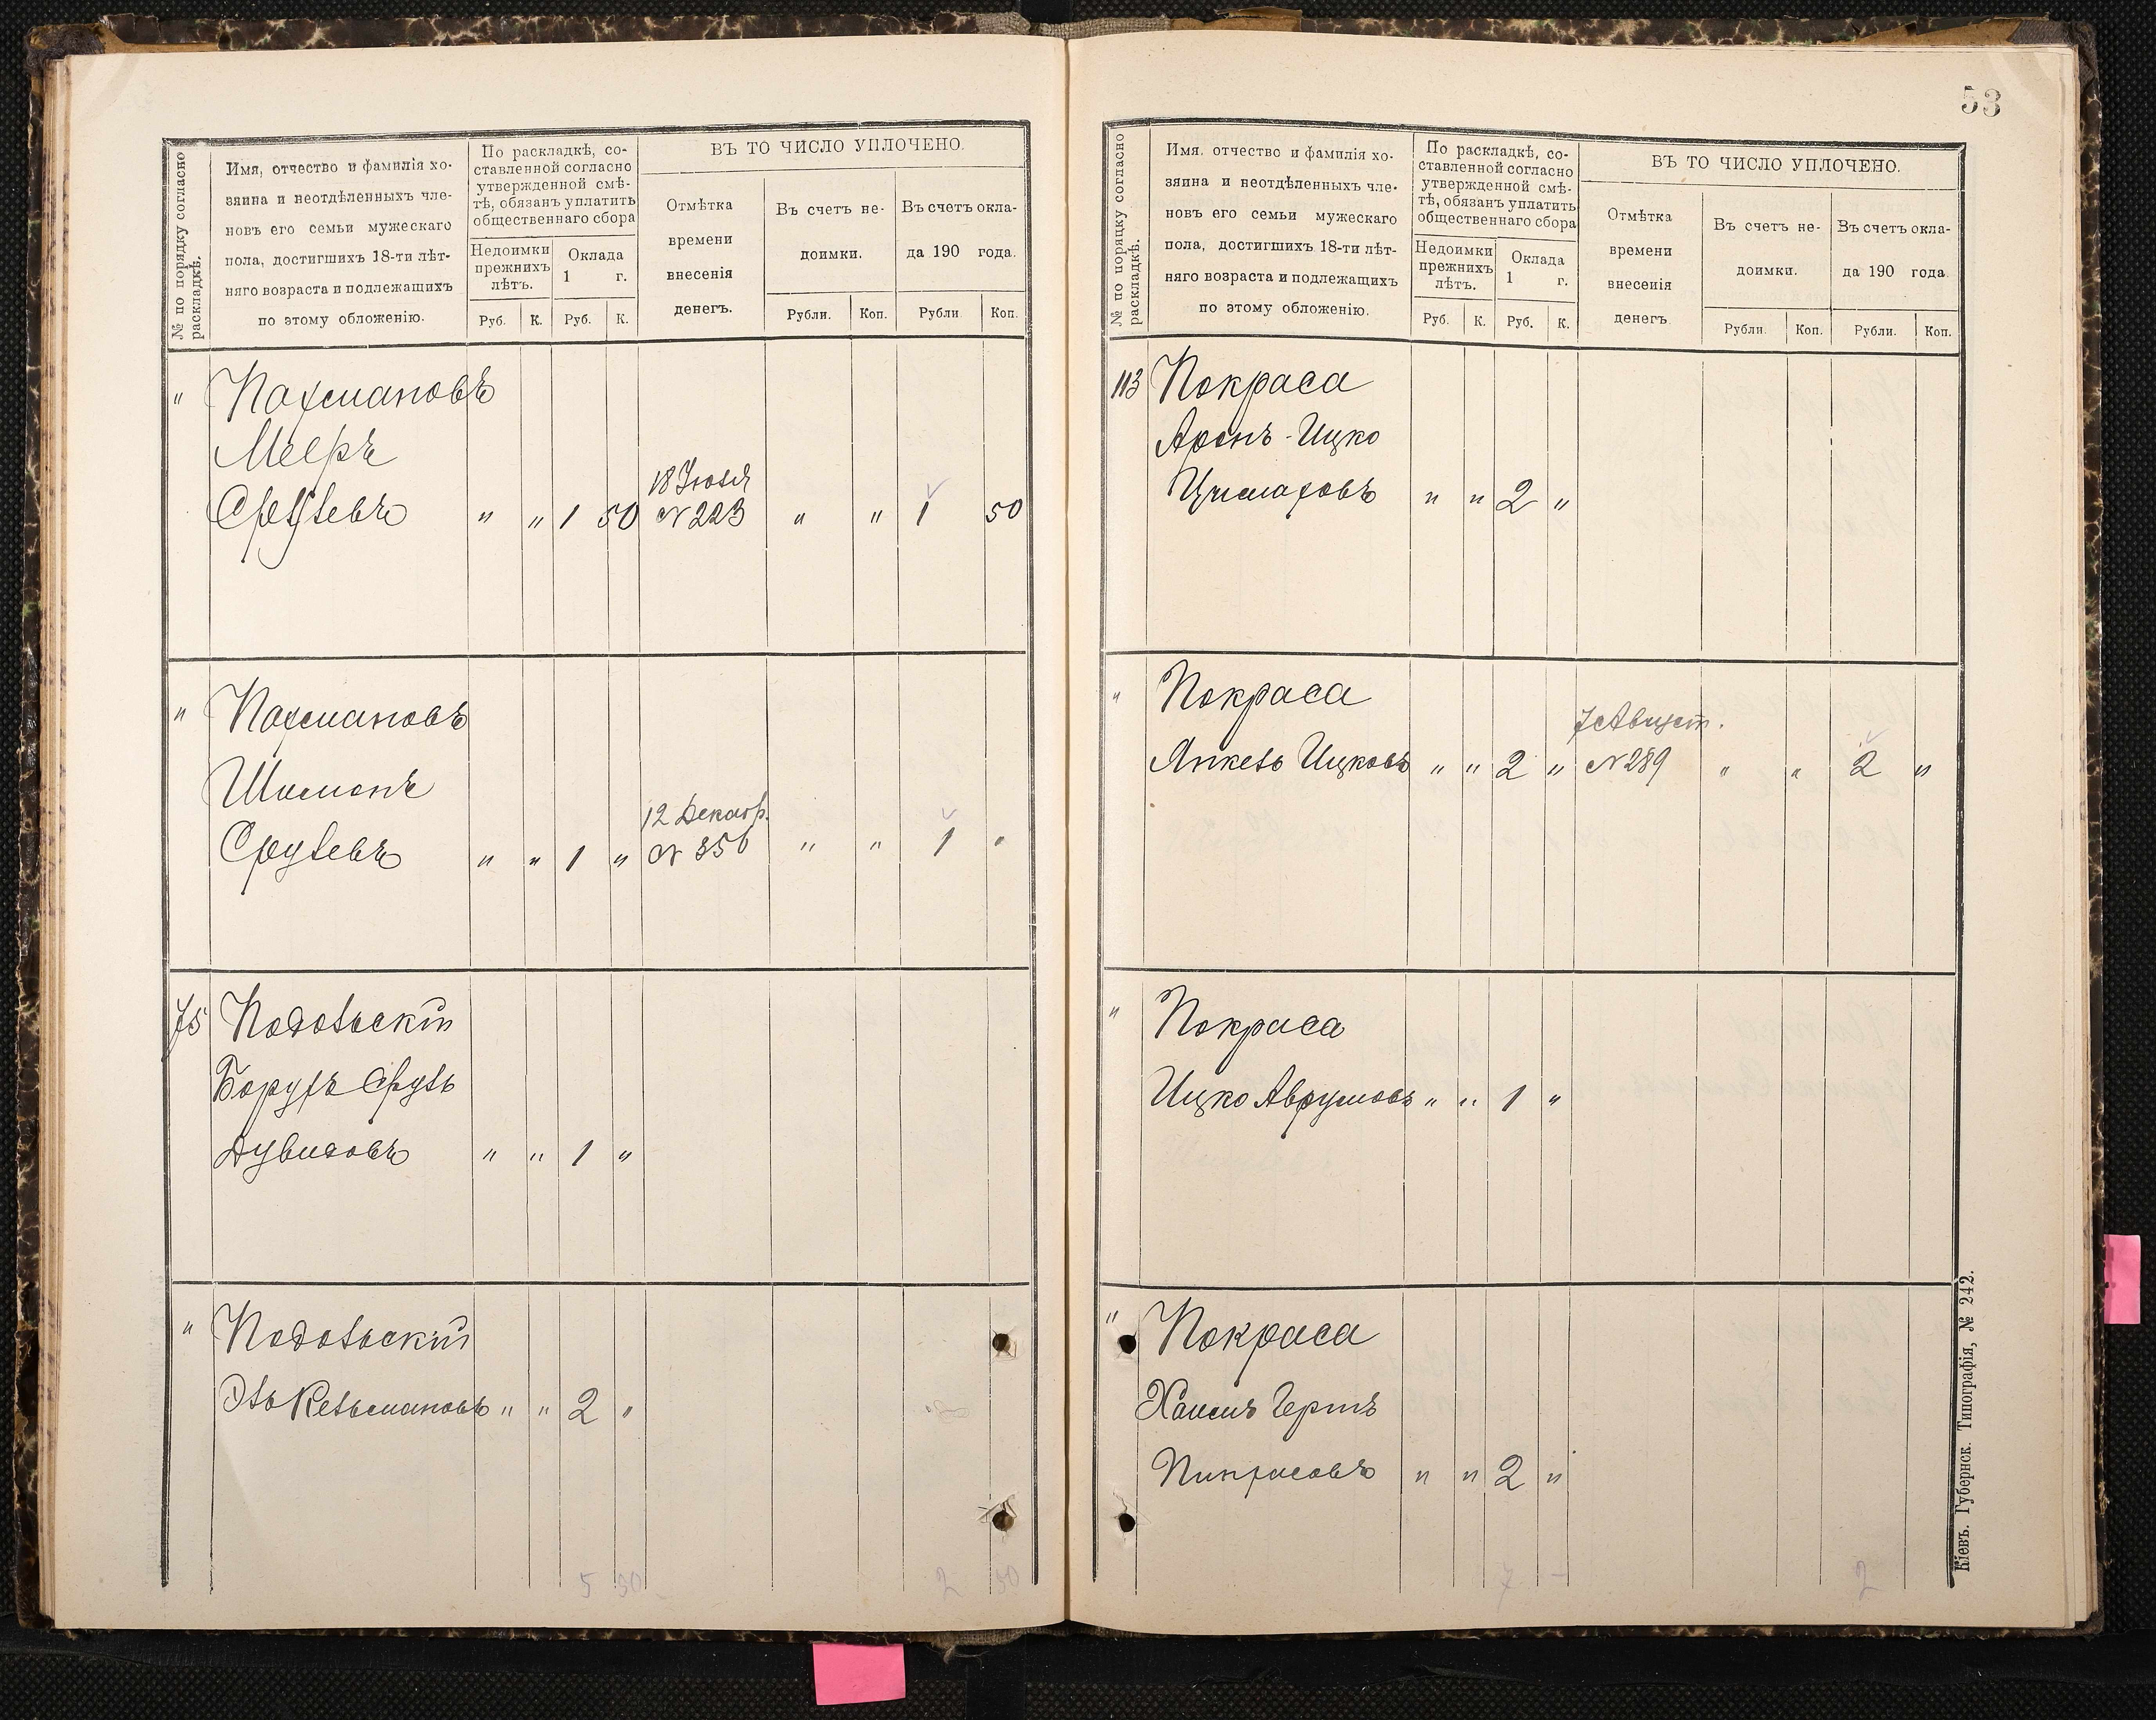 № по порядку согласно
раскладкѣ.
Имя, отчество и фамилія хо-
зяина и неотдѣленныхъ чле-
новъ его семьи мужескаго
пола, достигшихъ 18-ти лѣт-
няго возраста и подлежащихъ
по этому обложенію.
По раскладкѣ, со-
ставленной согласно
утвержденной смѣ-
тѣ, обязанъ уплатить
общественнаго сбора
Недоимки
прежнихъ
лѣтъ.
Оклада
1 г.
Руб. К. Руб. К.
ВЪ ТО ЧИСЛО УПЛОЧЕНО.
Отмѣтка
времени
внесенія
денегъ.
Въ счетъ не-
доимки.
Въ счетъ окла-
да 190 года.
Рубли. Коп. Рубли Коп.
" Пахмановъ
Мееръ
18 Іюля
Срулевъ " " 1 50 № 223 " " 1 50
" Пахмановъ
Шимонъ
12 Декабр.
Срулевъ " " 1 " № 356 " " 1 "
75 Подольскій
Борухъ Сруль
Дувидовъ " " 1 "
" Подольскій
Эль Кельмановъ " " 2 "
5 50 2 50
53
№ по порядку согласно
раскладкѣ.
Имя. отчество и фамилія хо-
зяина и неотдѣленныхъ чле-
новъ его семьи мужескаго
пола, достигшихъ 18-ти лѣт-
няго возраста и подлежащихъ
по этому обложенію.
По раскладкѣ, со-
ставленной согласно
утвержденной смѣ-
тѣ, обязанъ уплатить
общественнаго сбора
Недоимки
прежнихъ
лѣтъ.
Оклада
1 г.
Руб. К. Руб. К.
ВЪ ТО ЧИСЛО УПЛОЧЕНО.
Отмѣтка
времени
внесенія
денегъ
Въ счетъ не-
доимки.
Въ счетъ окла-
да 190 года
Рубли. Коп. Рубли. Коп.
113 Покраса
Аронъ-Ицко
Цималовъ " " 2 "
" Покраса
7 Август.
Янкель Ицковъ " " 2 " № 289 " " 2 "
" Покраса
Ицко Аврумовъ " " 1 "
" Покраса
Хаимъ Гершъ
Пинхасовъ " " 2 "
7 - 2
Кіевъ. Губернск. Типографія, № 242.